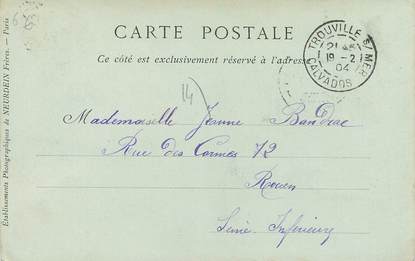 CARTE POSTALE
Ce côté est exclusivement réservé à l'adresse
TROUVILLE S/ MER
21
19 - 2
04
CALVADOS
14
Mademoiselle Jeanne
Rue des Carmes 72
Rouen
Seine Inférieure
Etablissements Photographiques de NEURDEIN Frères. — Paris